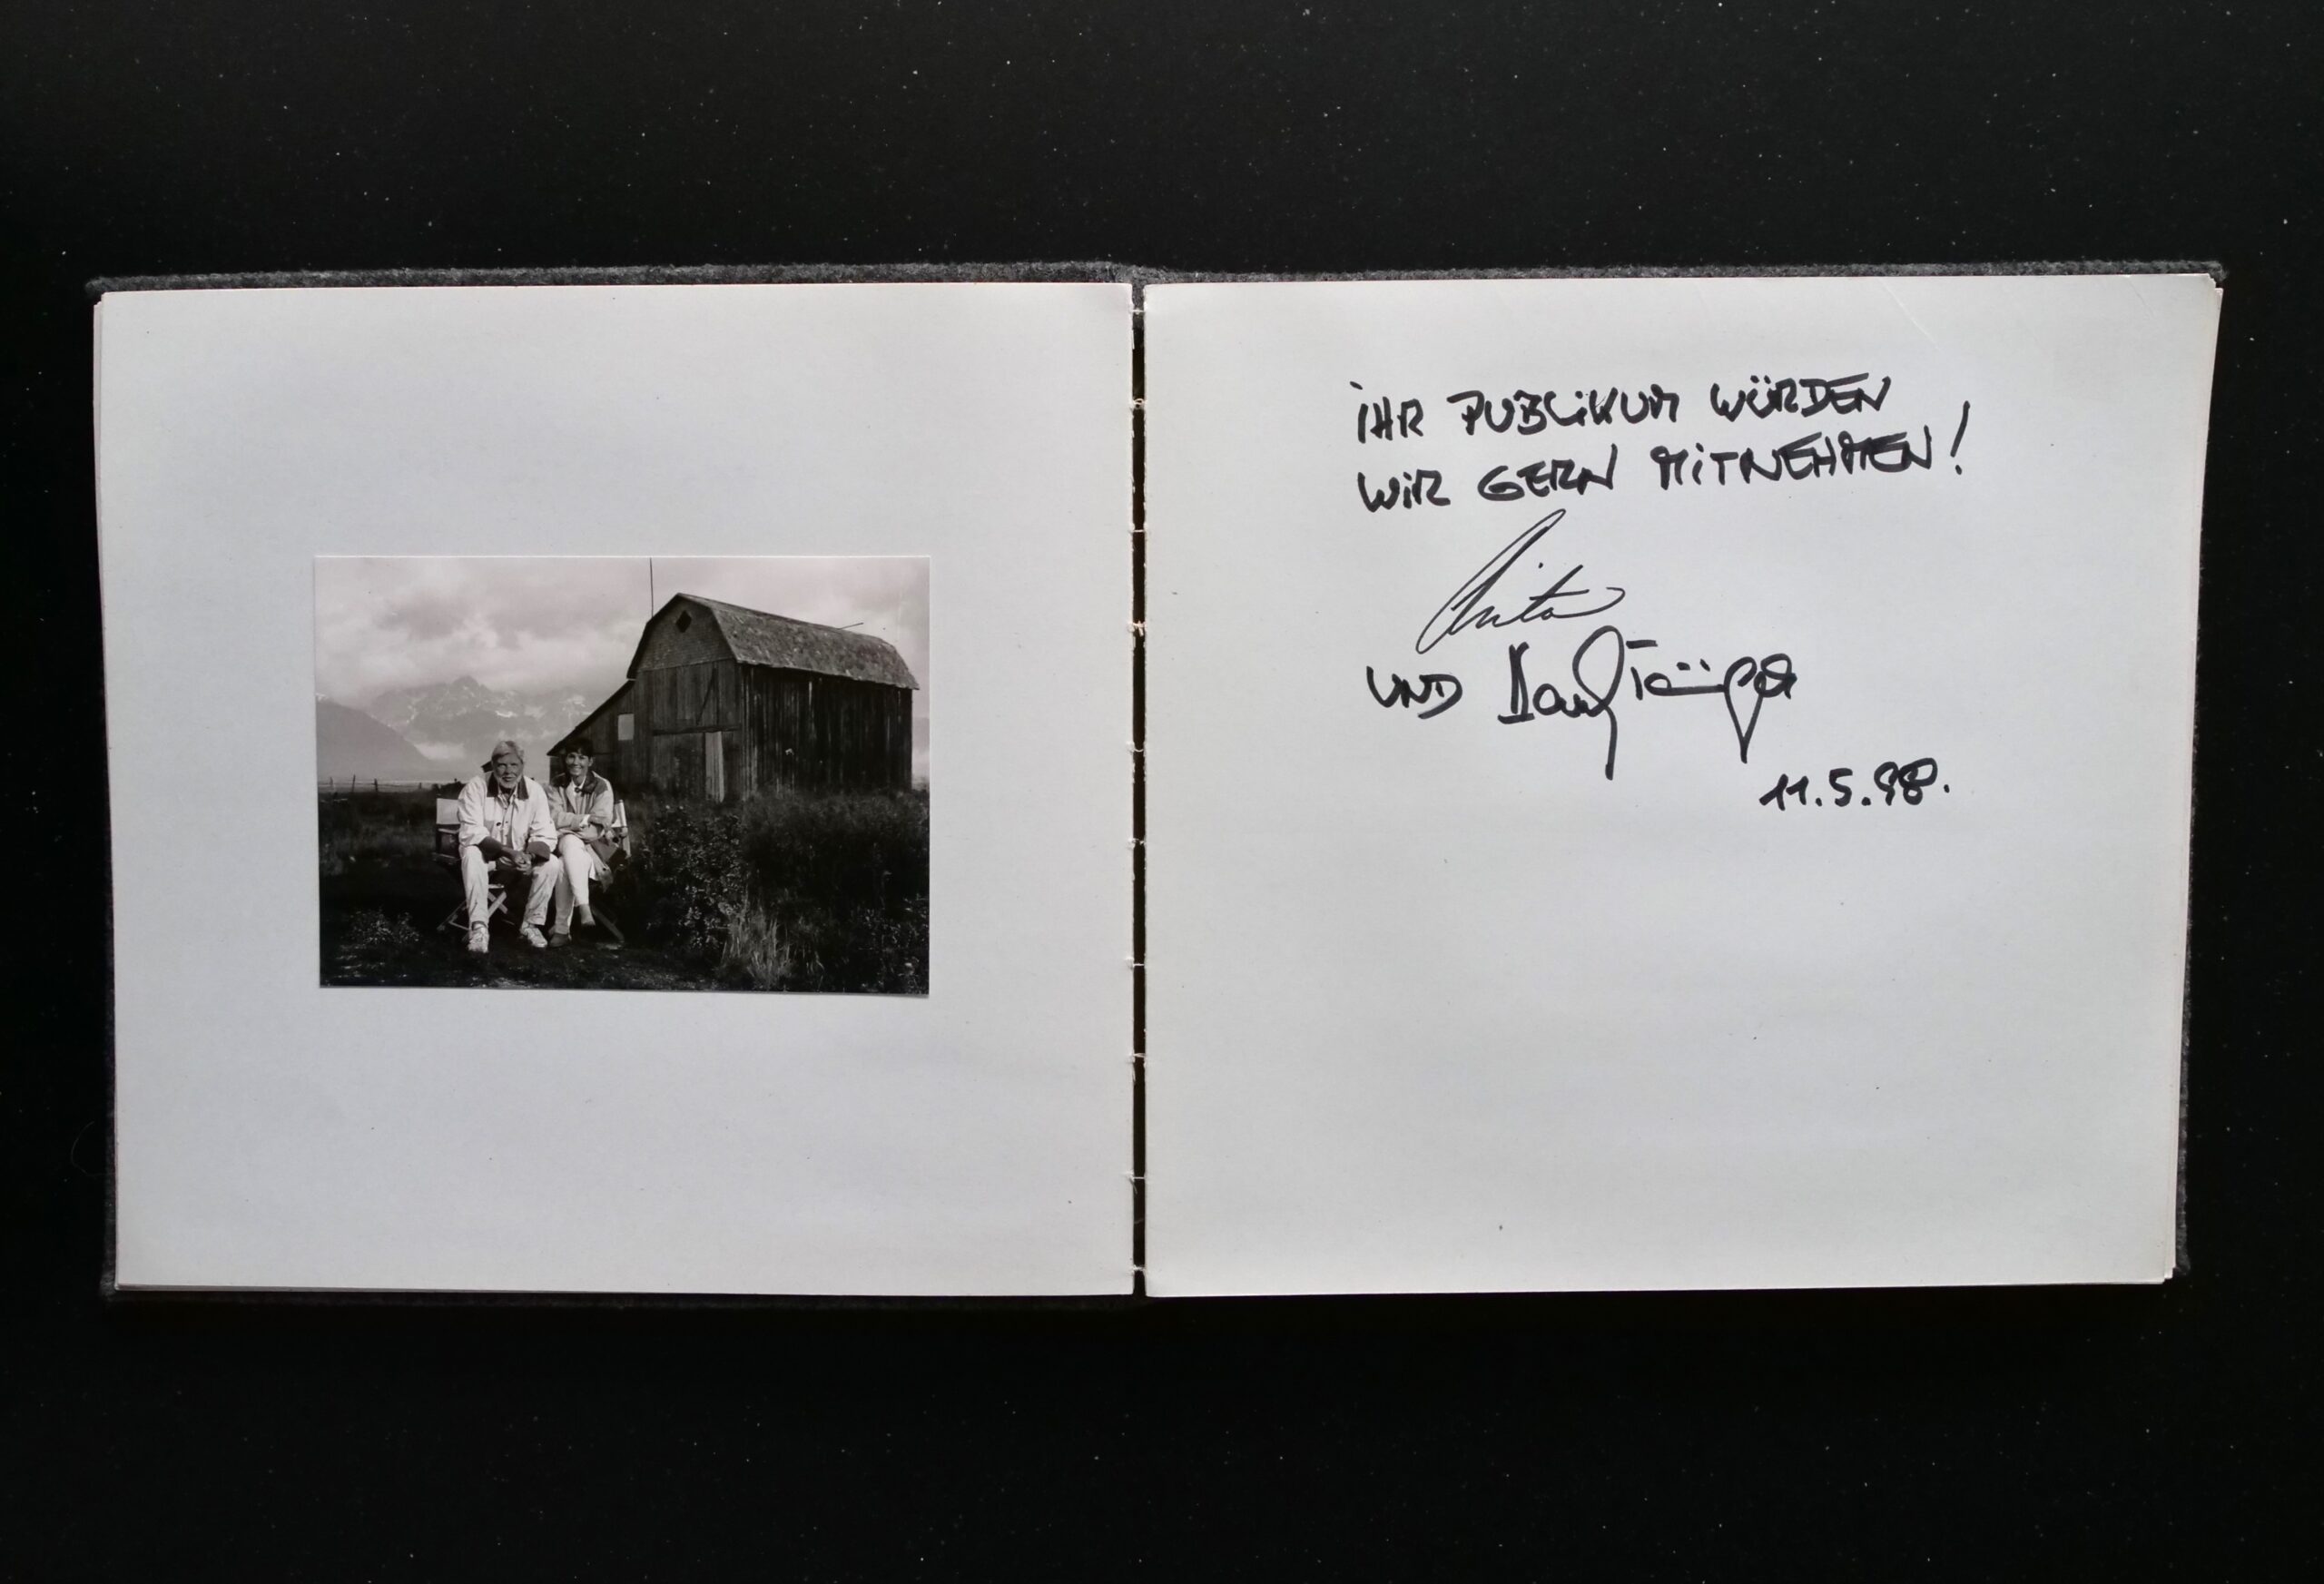 IHR PUBLIKUM WÜRDEN
WIR GERN MITNEHMEN!
Anita
UND
11.5.98.